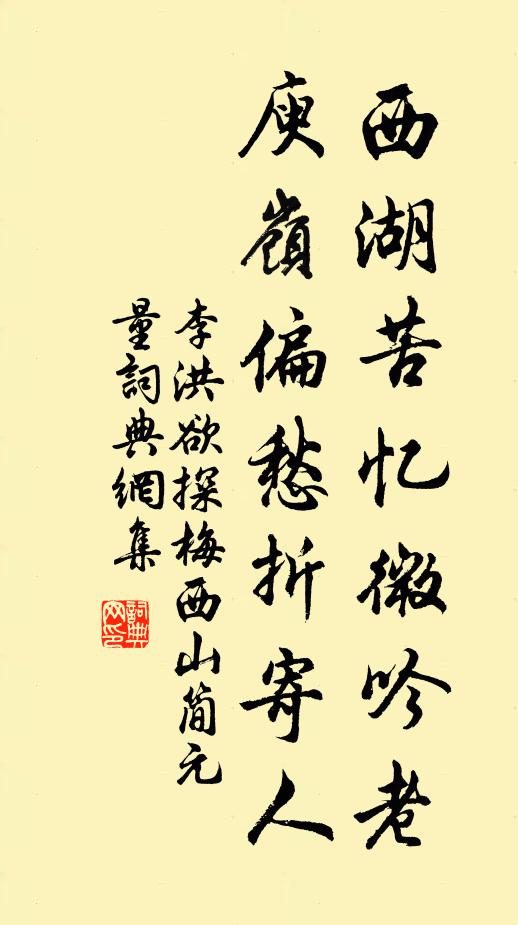 西湖苦忆微吟老
庾嶺偏愁折寄人
李洪欲探梅西山简元
量詞典網集
詞典
网印